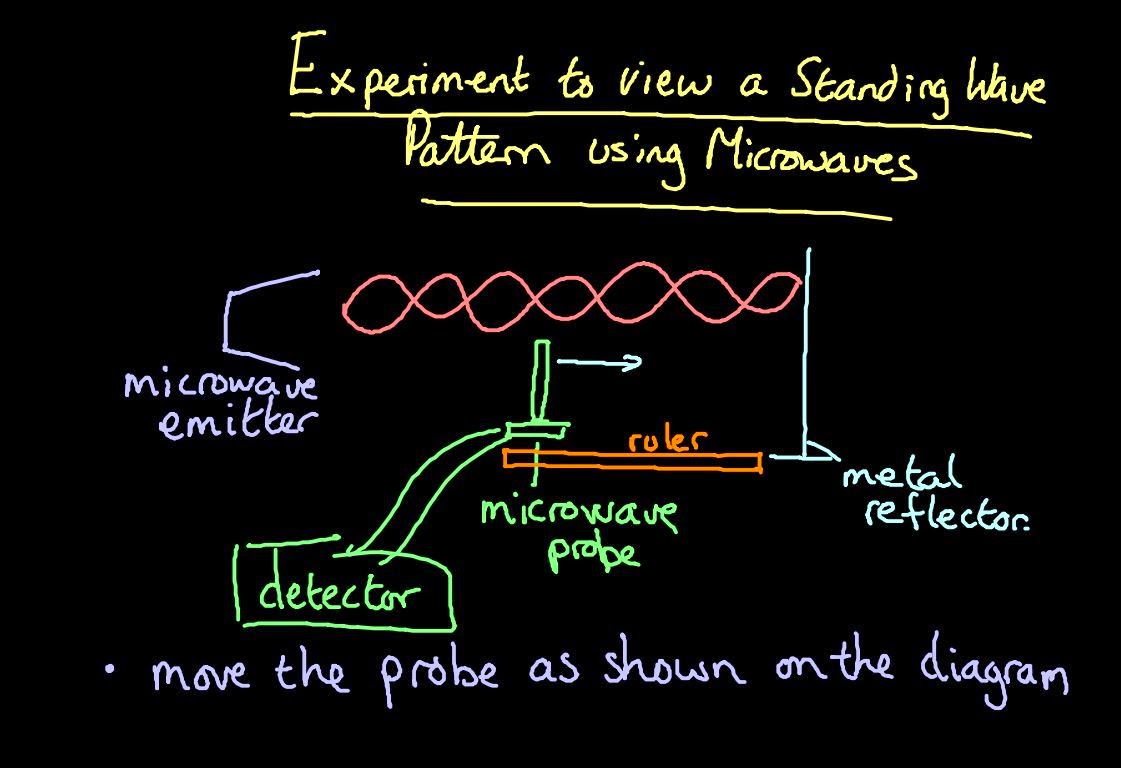 Experiment to view a Standing Wave
Pattern using Microwaves
microwave
emitter
ruler
metal
reflector.
microwave
probe
detector
• move the probe as shown on the diagram